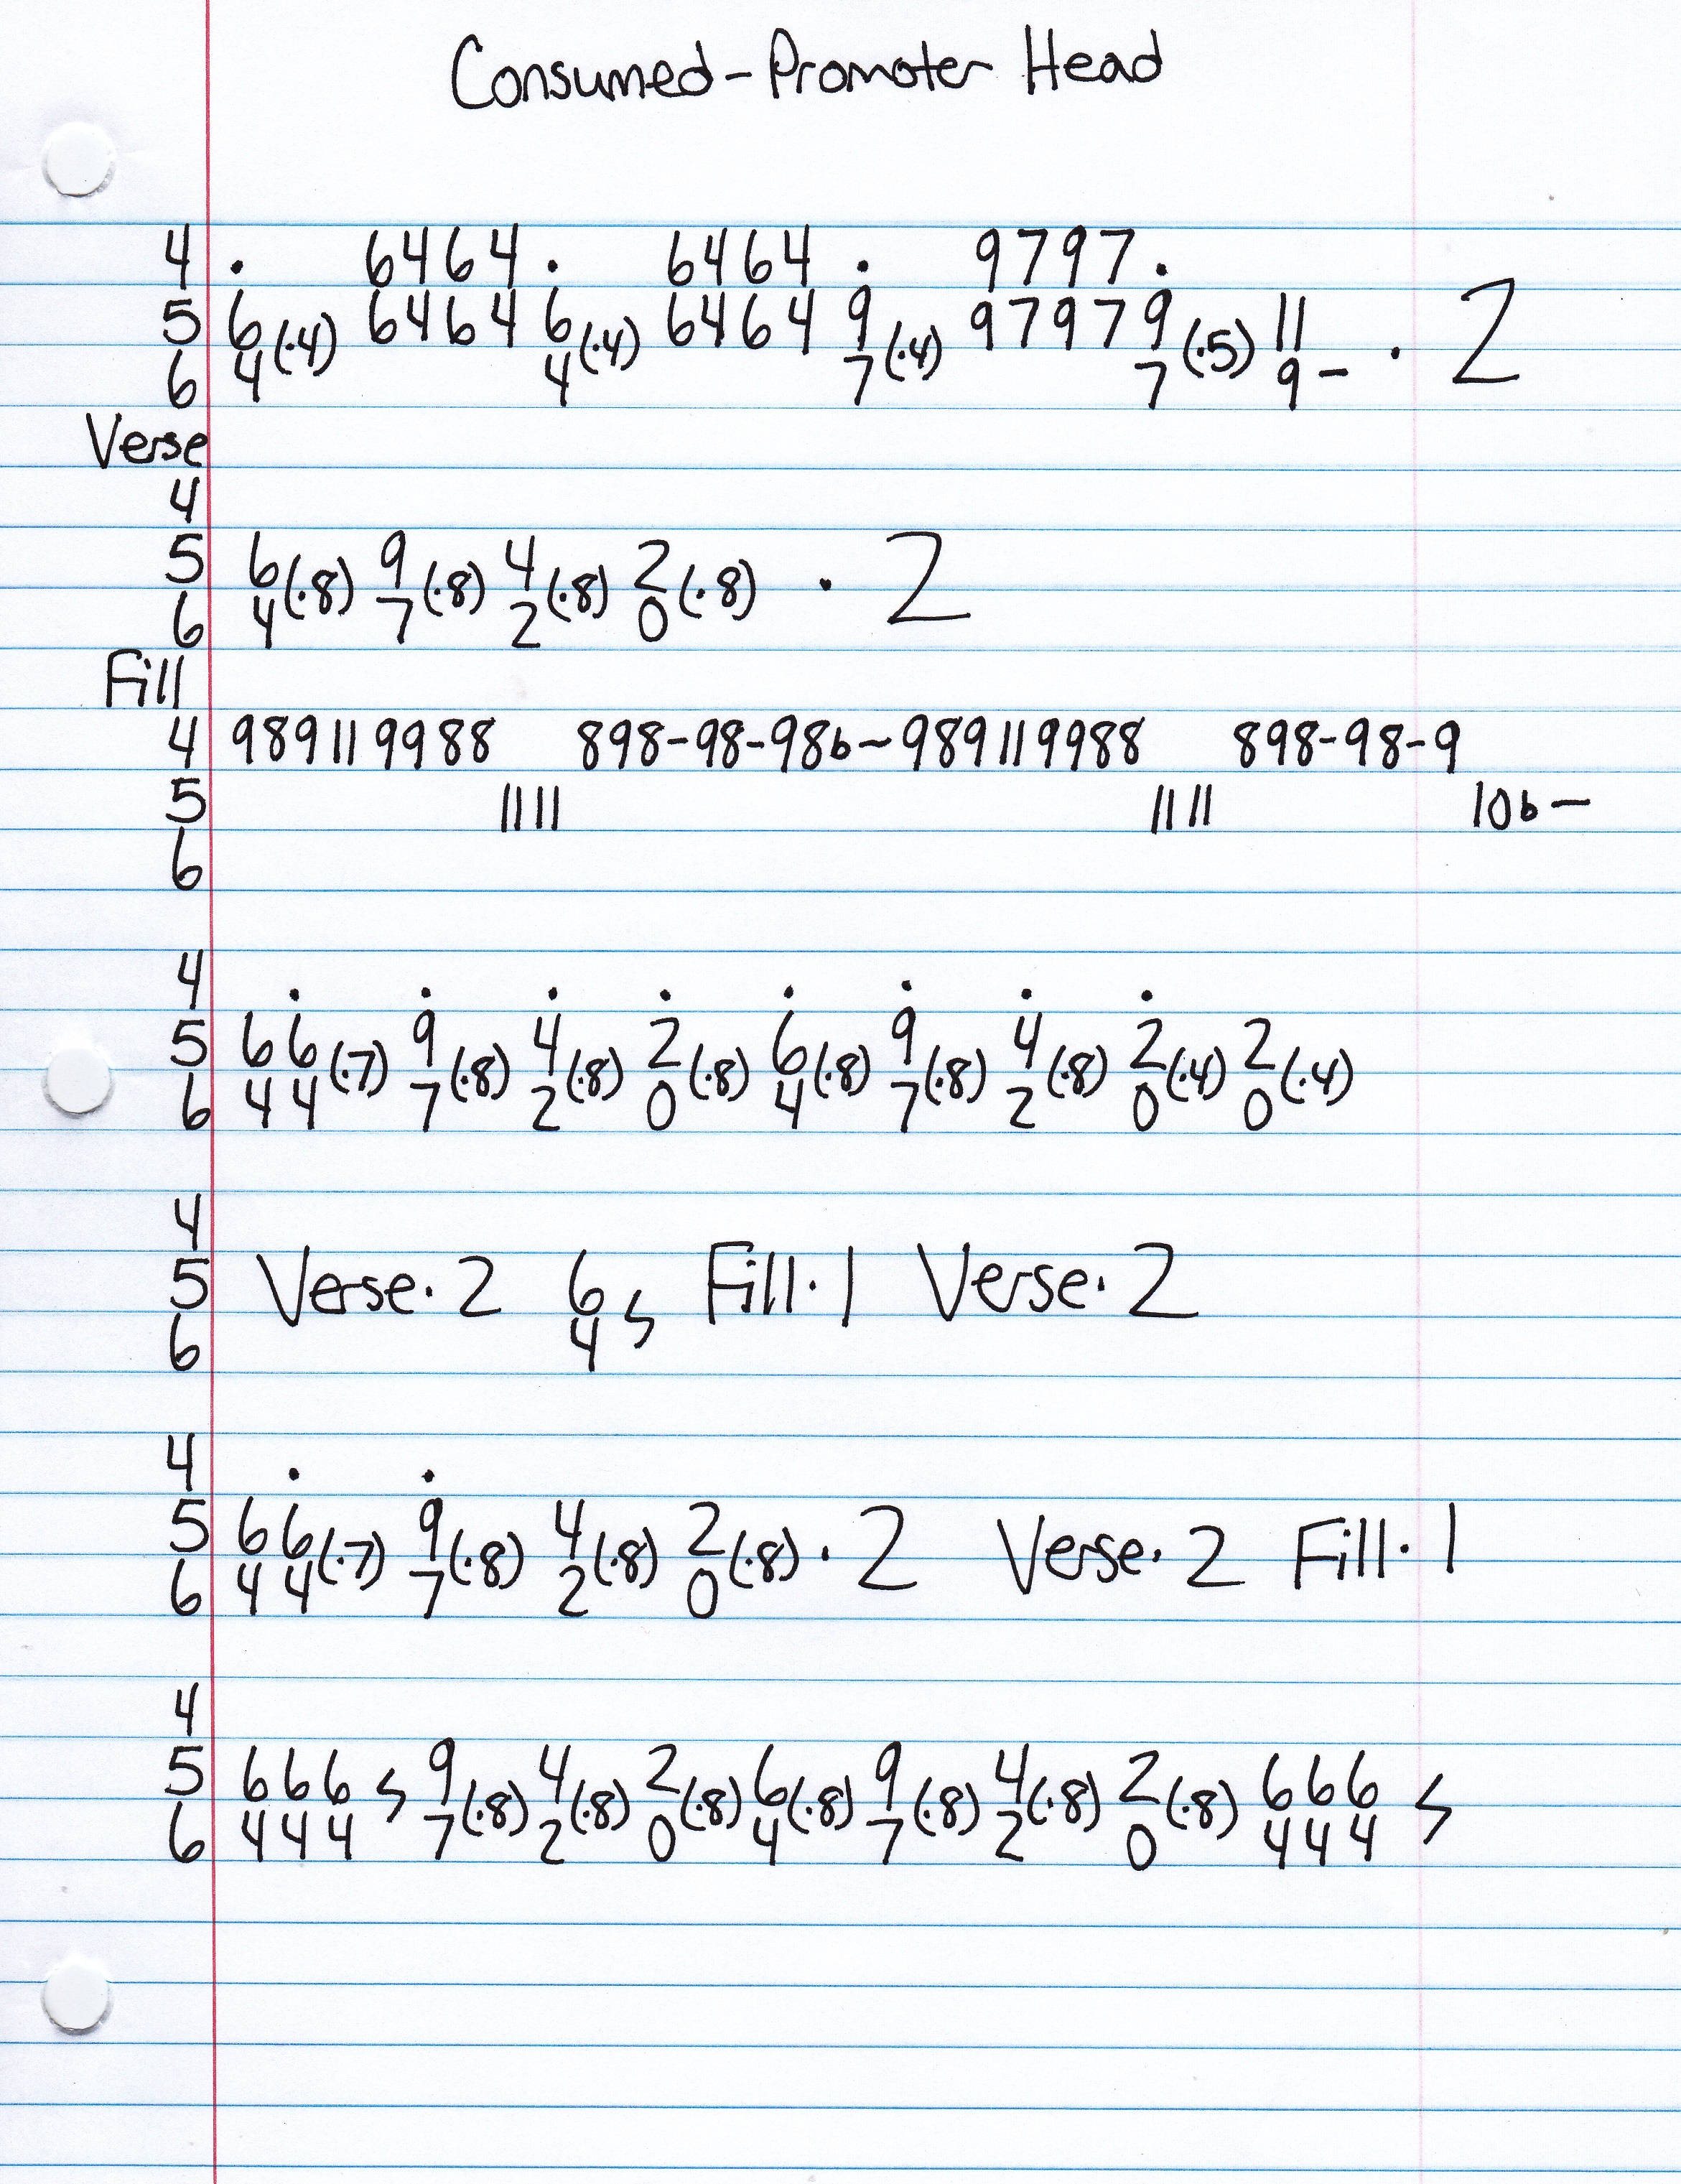 Consumed-Promoter Head
4 . 6464. 6464 . 9797.
5 6(·4) 6464 6(·4) 6464 9(·4) 97979(·5) 11
6 4 4 7 7 9- · 2
Verse
4
5 6(·8) 9(·8) 4(·8) 2(·8) · 2
6 4 7 2 0
Fill
4 989119988 898-98-98b~989119988 898-98-9
5 1111 1111 10b-
6
4 . . . . . . . .
5 66(·7) 9(·8) 4(·8) 2(·8) 6(·8) 9(·8) 4(·8) 2(·4) 2(·4)
6 44 7 2 0 4 7 2 0 0
4
5 Verse·2 6 Fill·1 Verse·2
6 4
4 . .
5 66(·7) 9(·8) 4(·8) 2(·8)·2 Verse·2 Fill·1
6 44 7 2 0
4
5 666 9(·8) 4(·8) 2(·8) 6(·8) 9(·8) 4(·8) 2(·8) 666
6 444 7 2 0 4 7 2 0 444